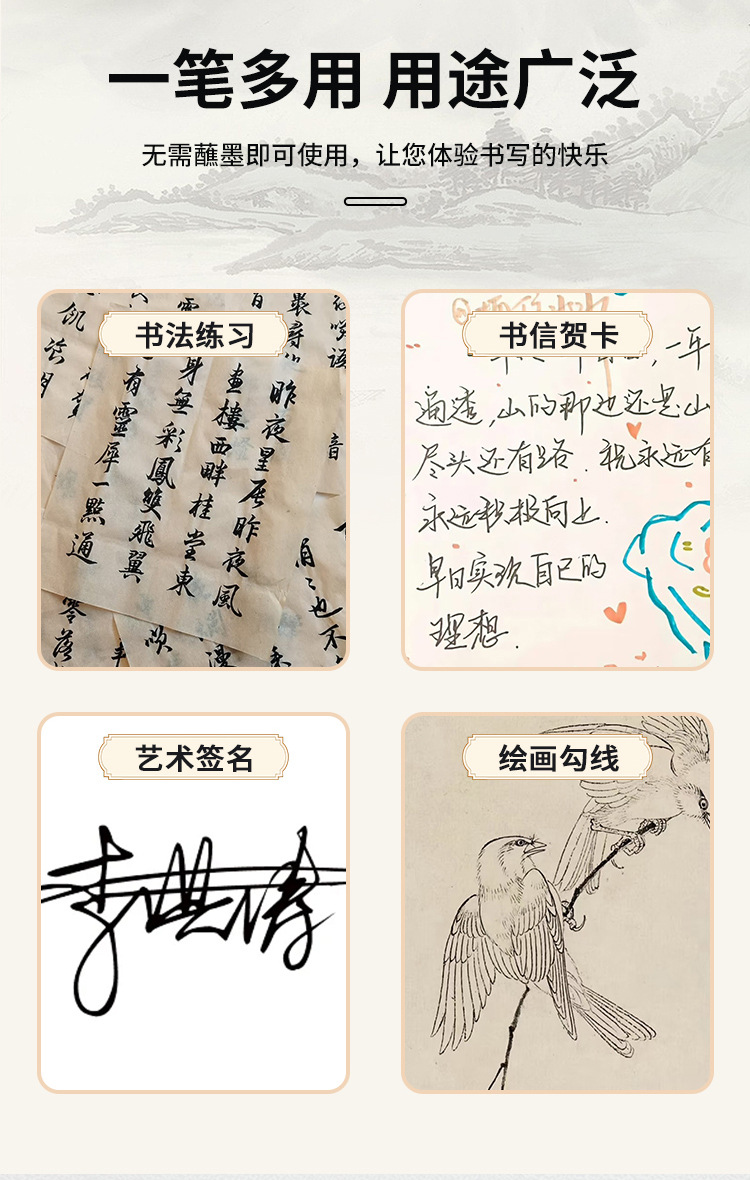 一笔多用 用途广泛
无需蘸墨即可使用，让您体验书写的快乐
书法练习
昨夜星辰昨夜風
畫樓西畔桂堂東
身無彩鳳雙飛翼
有靈犀一點通
音
自
也不
零落
书信贺卡
一年
通透，山的那边还是山
尽头还有路．祝永远有
永远积极向上．
早日实现自己的
理想．
艺术签名
绘画勾线